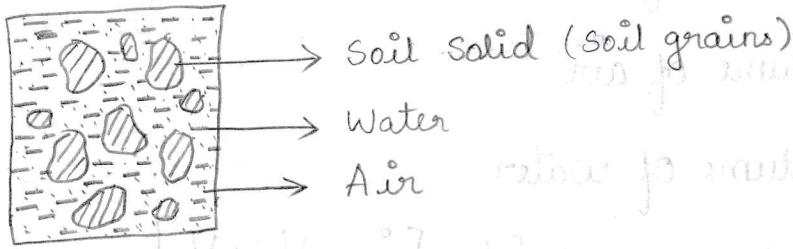 Soil Solid (Soil grains)
Water
Air